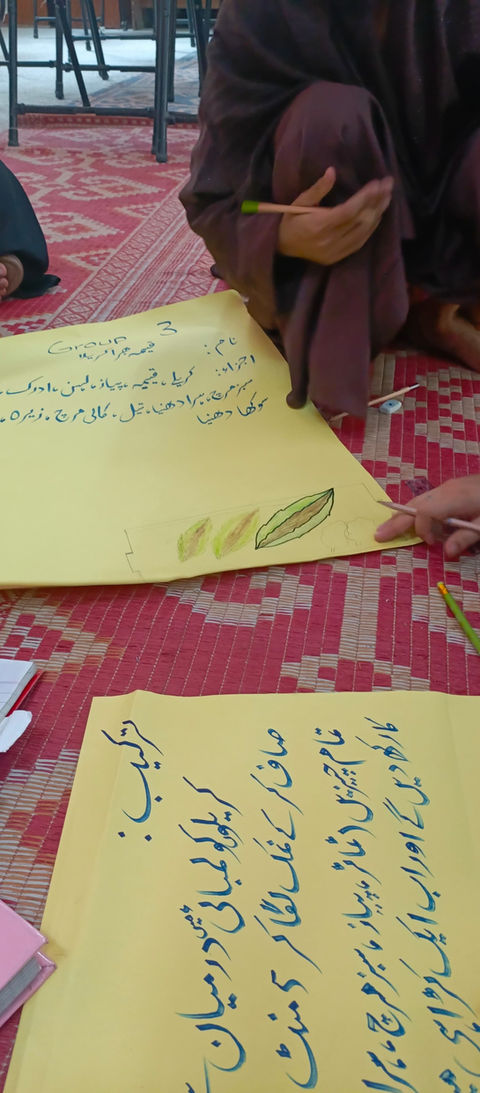 Group 3
نام: قیمہ بھرا کریلا
اجزاء: کریلا، قیمہ، پیاز، لہسن، ادرک،
سبز مرچ، ہرا دھنیا، تیل، کالی مرچ، زیرہ،
سوکھا دھنیا
ترکیب:
کریلوں کو لمبائی میں درمیان
صاف کر کے نمک لگا کر منٹ
تمام چیزیں (ٹماٹر، پیاز، سبز مرچ، ہرا
کاٹ کر رکھ دیں گے اور اب ایک کڑاہی